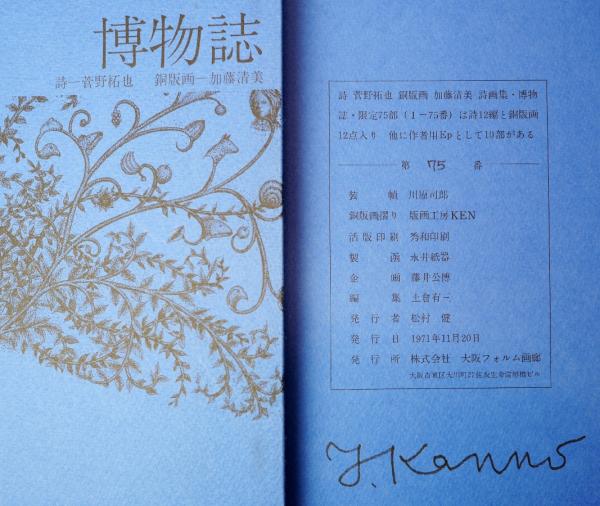 博物誌
詩―菅野拓也　銅版画―加藤清美
詩 菅野拓也 銅版画 加藤清美 詩画集・博物
誌・限定75部（1－75番）は詩12編と銅版画
12点入り　他に作者用Epとして10部がある
第 75 番
装幀 川原司郎
銅版画摺り 版画工房KEN
活版印刷 秀和印刷
製 永井紙器
企画 藤井公博
編集 土倉有三
発行者 松村 健
発行日 1971年11月20日
発行所 株式会社 大阪フォルム画廊
大阪市東区大川町27住友生命淀屋橋ビル
Y. Kanno